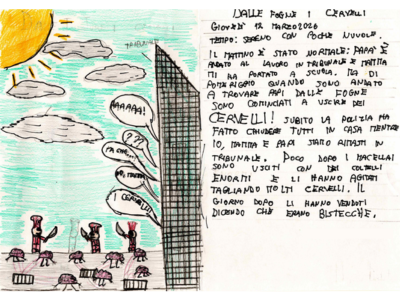 TRIBUNALE
AAAAAA!
???
MA CHE...
I CERVELLI!
DALLE FOGNE I CERVELLI
GIOVEDÌ 12 MARZO 2026
TEMPO: SERENO CON POCHE NUVOLE.
IL MATTINO È STATO NORMALE: PAPÀ È
ANDATO AL LAVORO IN TRIBUNALE E MATITA
MI HA PORTATO A SCUOLA. MA DI
POMERIGGIO QUANDO SONO ANDATO
A TROVARE PAPI DALLE FOGNE
SONO COMINCIATI A USCIRE DEI
CERVELLI! SUBITO LA POLIZIA HA
FATTO CHIUDERE TUTTI IN CASA MENTRE
IO, MATITA E PAPI SIAMO RIMASTI IN
TRIBUNALE. POCO DOPO I MACELLAI
SONO USCITI CON DEI COLTELLI
ENORMI E LI HANNO
TAGLIANDO MOLTI CERVELLI. IL
GIORNO DOPO LI HANNO VENDUTI
DICENDO CHE ERANO BISTECCHE.